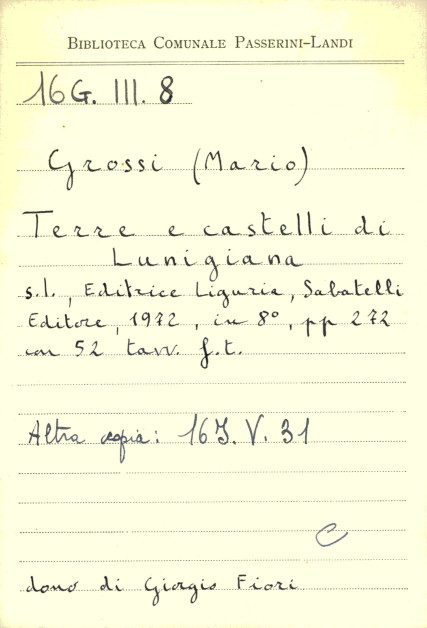 BIBLIOTECA COMUNALE PASSERINI-LANDI
16G. III. 8
Grossi (Mario)
Terre e castelli di
Lunigiana
s.l., Editrice Liguria, Sabatelli
Editore, 1972, in 8º, pp 272
con 52 tavv. f.t.
Altra copia: 16I. V. 31
C
dono di Giorgio Fiori